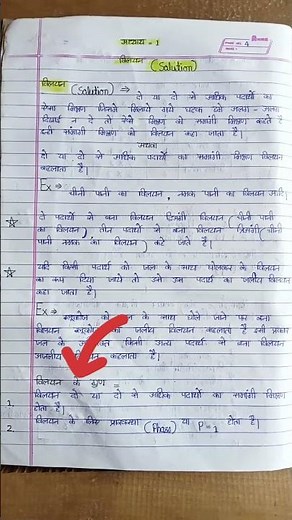 अध्याय - 1
4
विलयन (Salution)
विलयन (Salution) ⇒ दो या दो से अधिक पदार्थों का
ऐसा मिश्रण जिसमें मिलाये गये घटक उसे अलग - अलग
दिखाई न दे तो ऐसे मिश्रण को समांगी मिश्रण कहते हैं
इसी समांगी मिश्रण को विलयन कहा जाता है।
अथवा
दो या दो से अधिक पदार्थों का समांगी मिश्रण विलयन
कहलाता है।
Ex ⇒
चीनी पानी का विलयन, नमक पानी का विलयन आदि।
दो पदार्थों से बना विलयन द्विअंगी विलयन (चीनी पानी
का विलयन), तीन पदार्थों से बना विलयन त्रिअंगी (चीनी
पानी नमक का विलयन) कहे जाते हैं।
यदि किसी पदार्थ को जल के साथ घोलकर के विलयन
का रूप दिया जाये तो उसे उस पदार्थ का जलीय विलयन
कहा जाता है।
Ex ⇒
ग्लूकोज को जल के साथ घोले जाने पर बना
विलयन ग्लूकोज का जलीय विलयन कहलाता है इसी प्रकार
जल के अतिरिक्त किसी अन्य पदार्थ से बना विलयन
अजलीय विलयन कहलाता है।
विलयन के गुण =
1. विलयन दो या दो से अधिक पदार्थों का समांगी मिश्रण
होता है।
2. विलयन के लिए प्रावस्था (Phase) या P = 1 होता है।